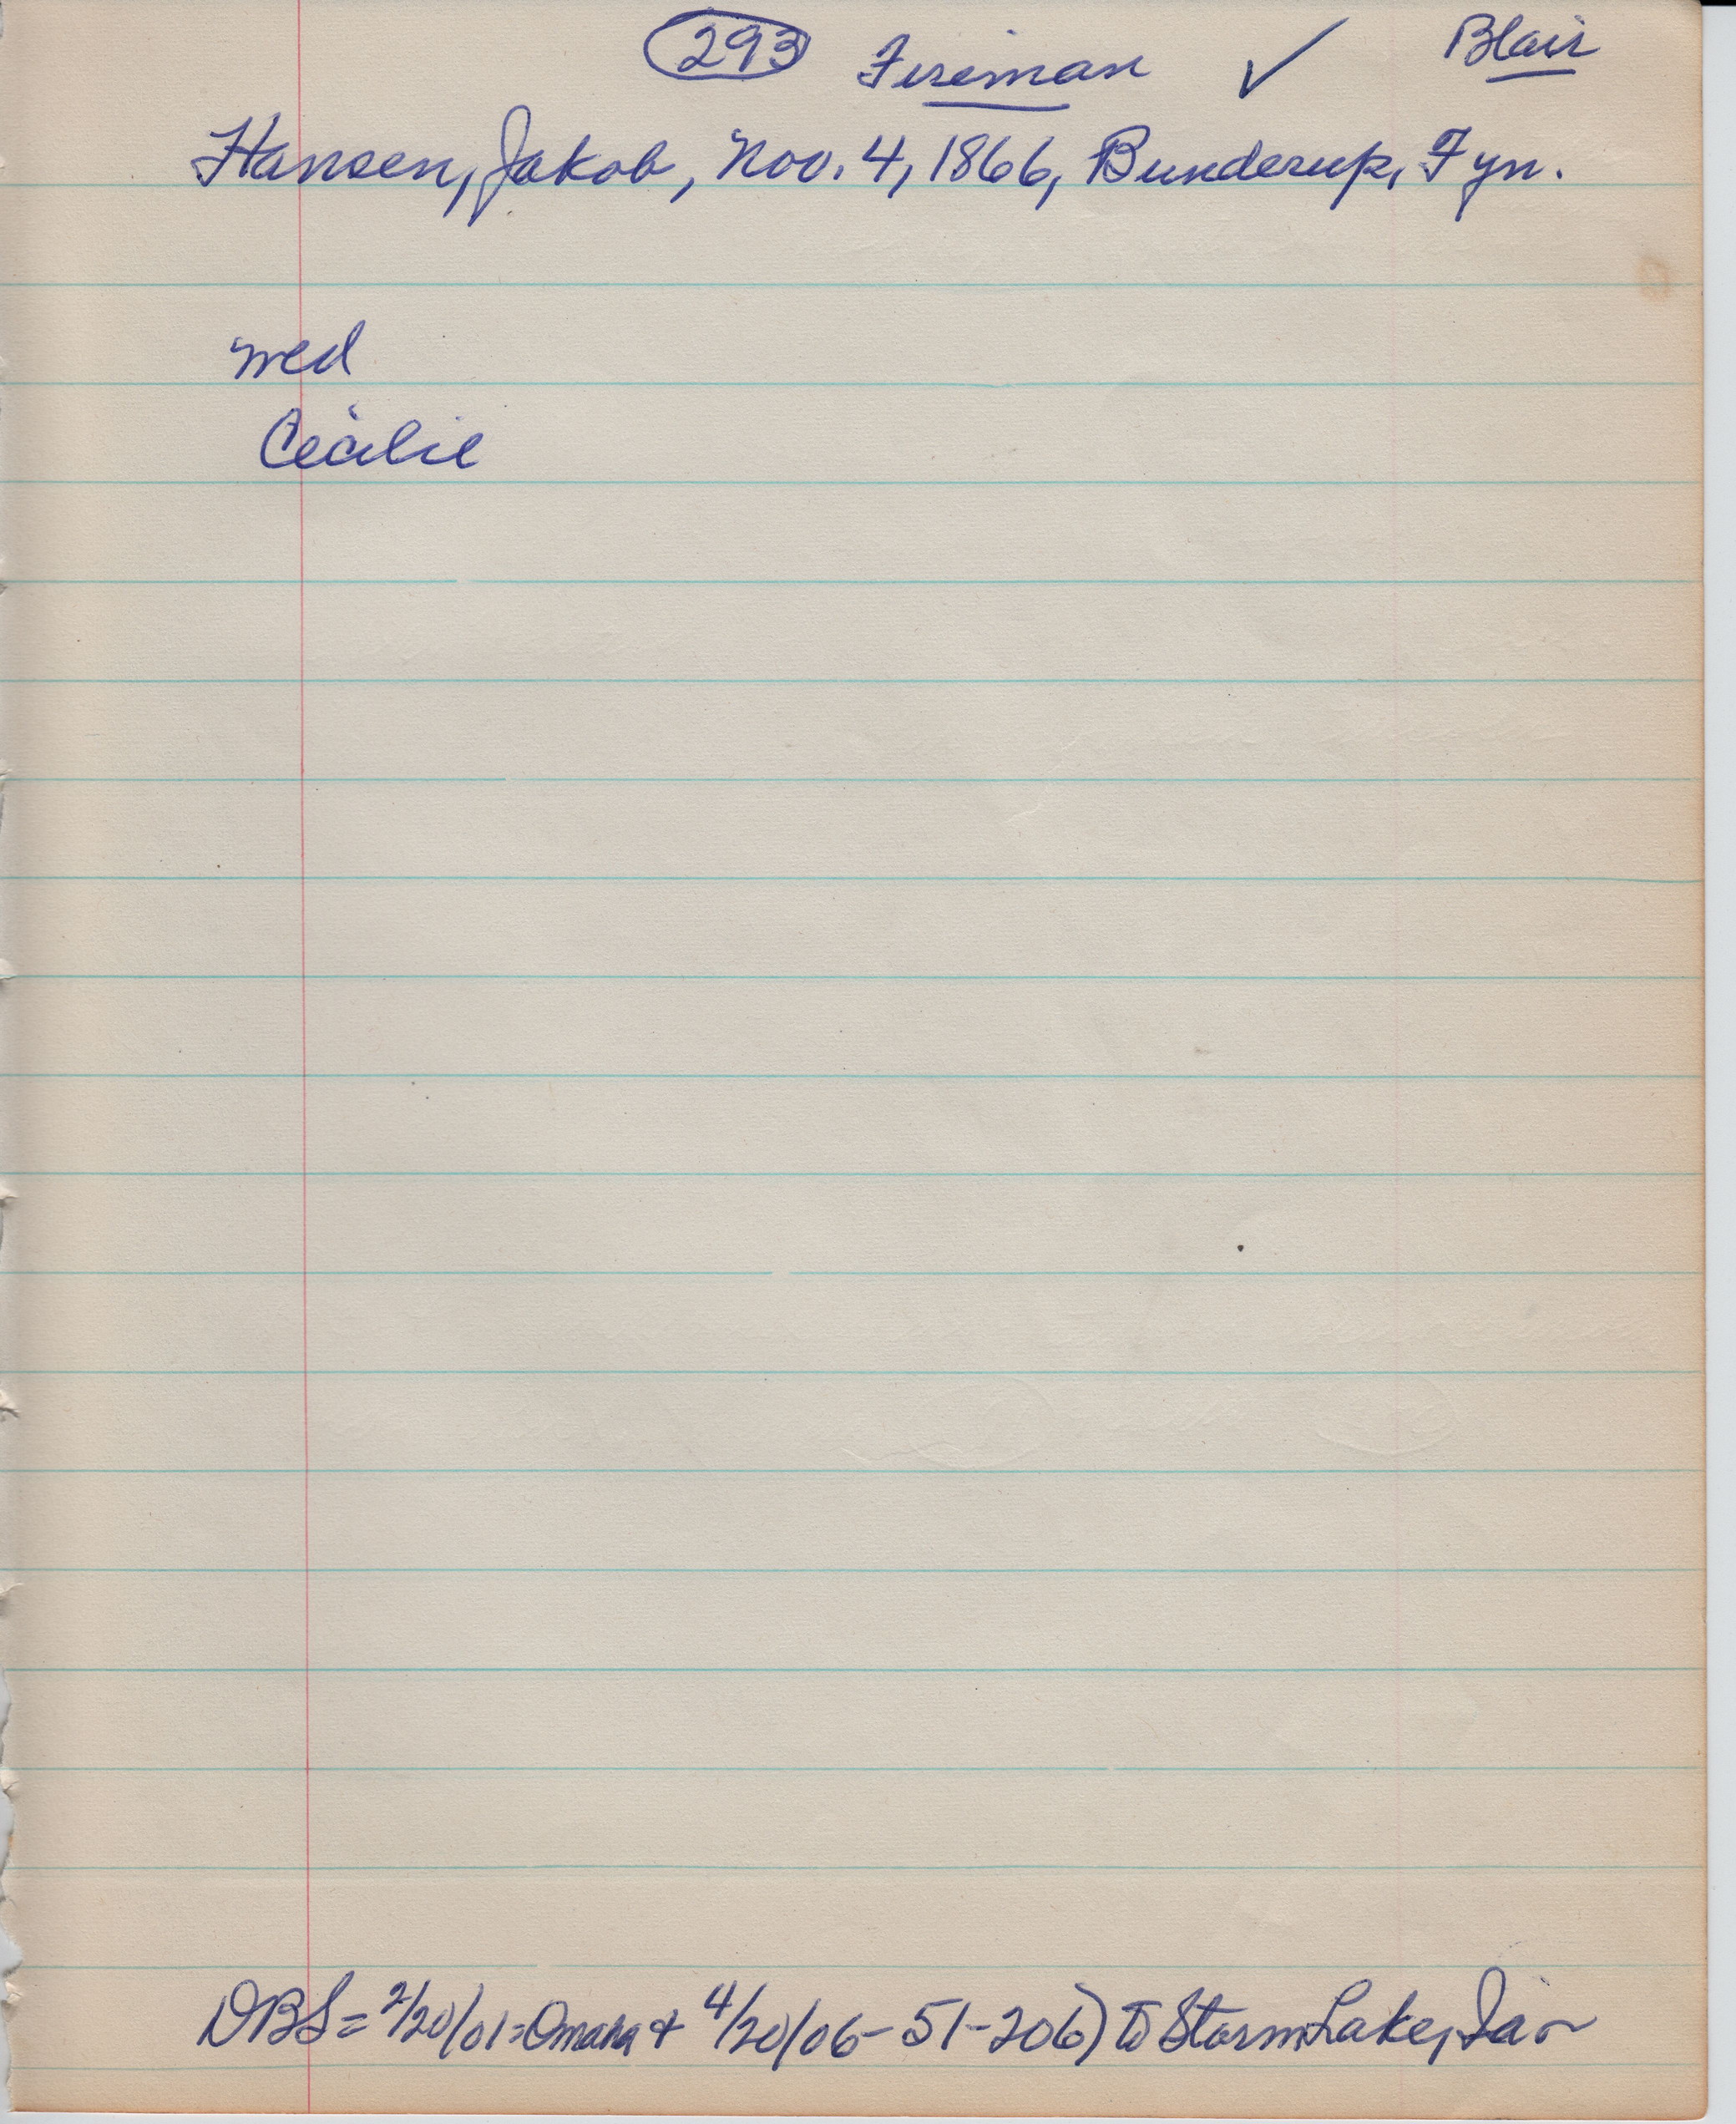 293 Fireman ✓ Blair
Hansen, Jakob, Nov. 4, 1866, Bunderup, Fyn.
med
Cecilie
DBS = 2/20/01 = Omaha + 4/20/06 - 51 - 206) to Storm Lake, Ia